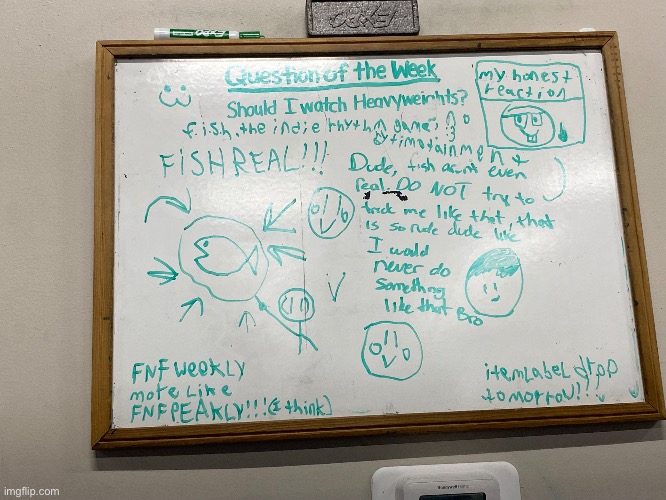 EXPO
EXPO
Question of the Week
my honest
reaction
Should I watch Heavyweights?
fish, the indie rhythm game! :3
by timotainment
FISH REAL!!!
Dude, fish aren't even
real. DO NOT try to
trick me like that, that
is so rude dude like
I would
never do
something
like that Bro
FNF WEEKLY
more Like
FNF PEAKLY!!! (I think)
itemLabel drop
tomorrow!!!
Honeywell Home
imgflip.com